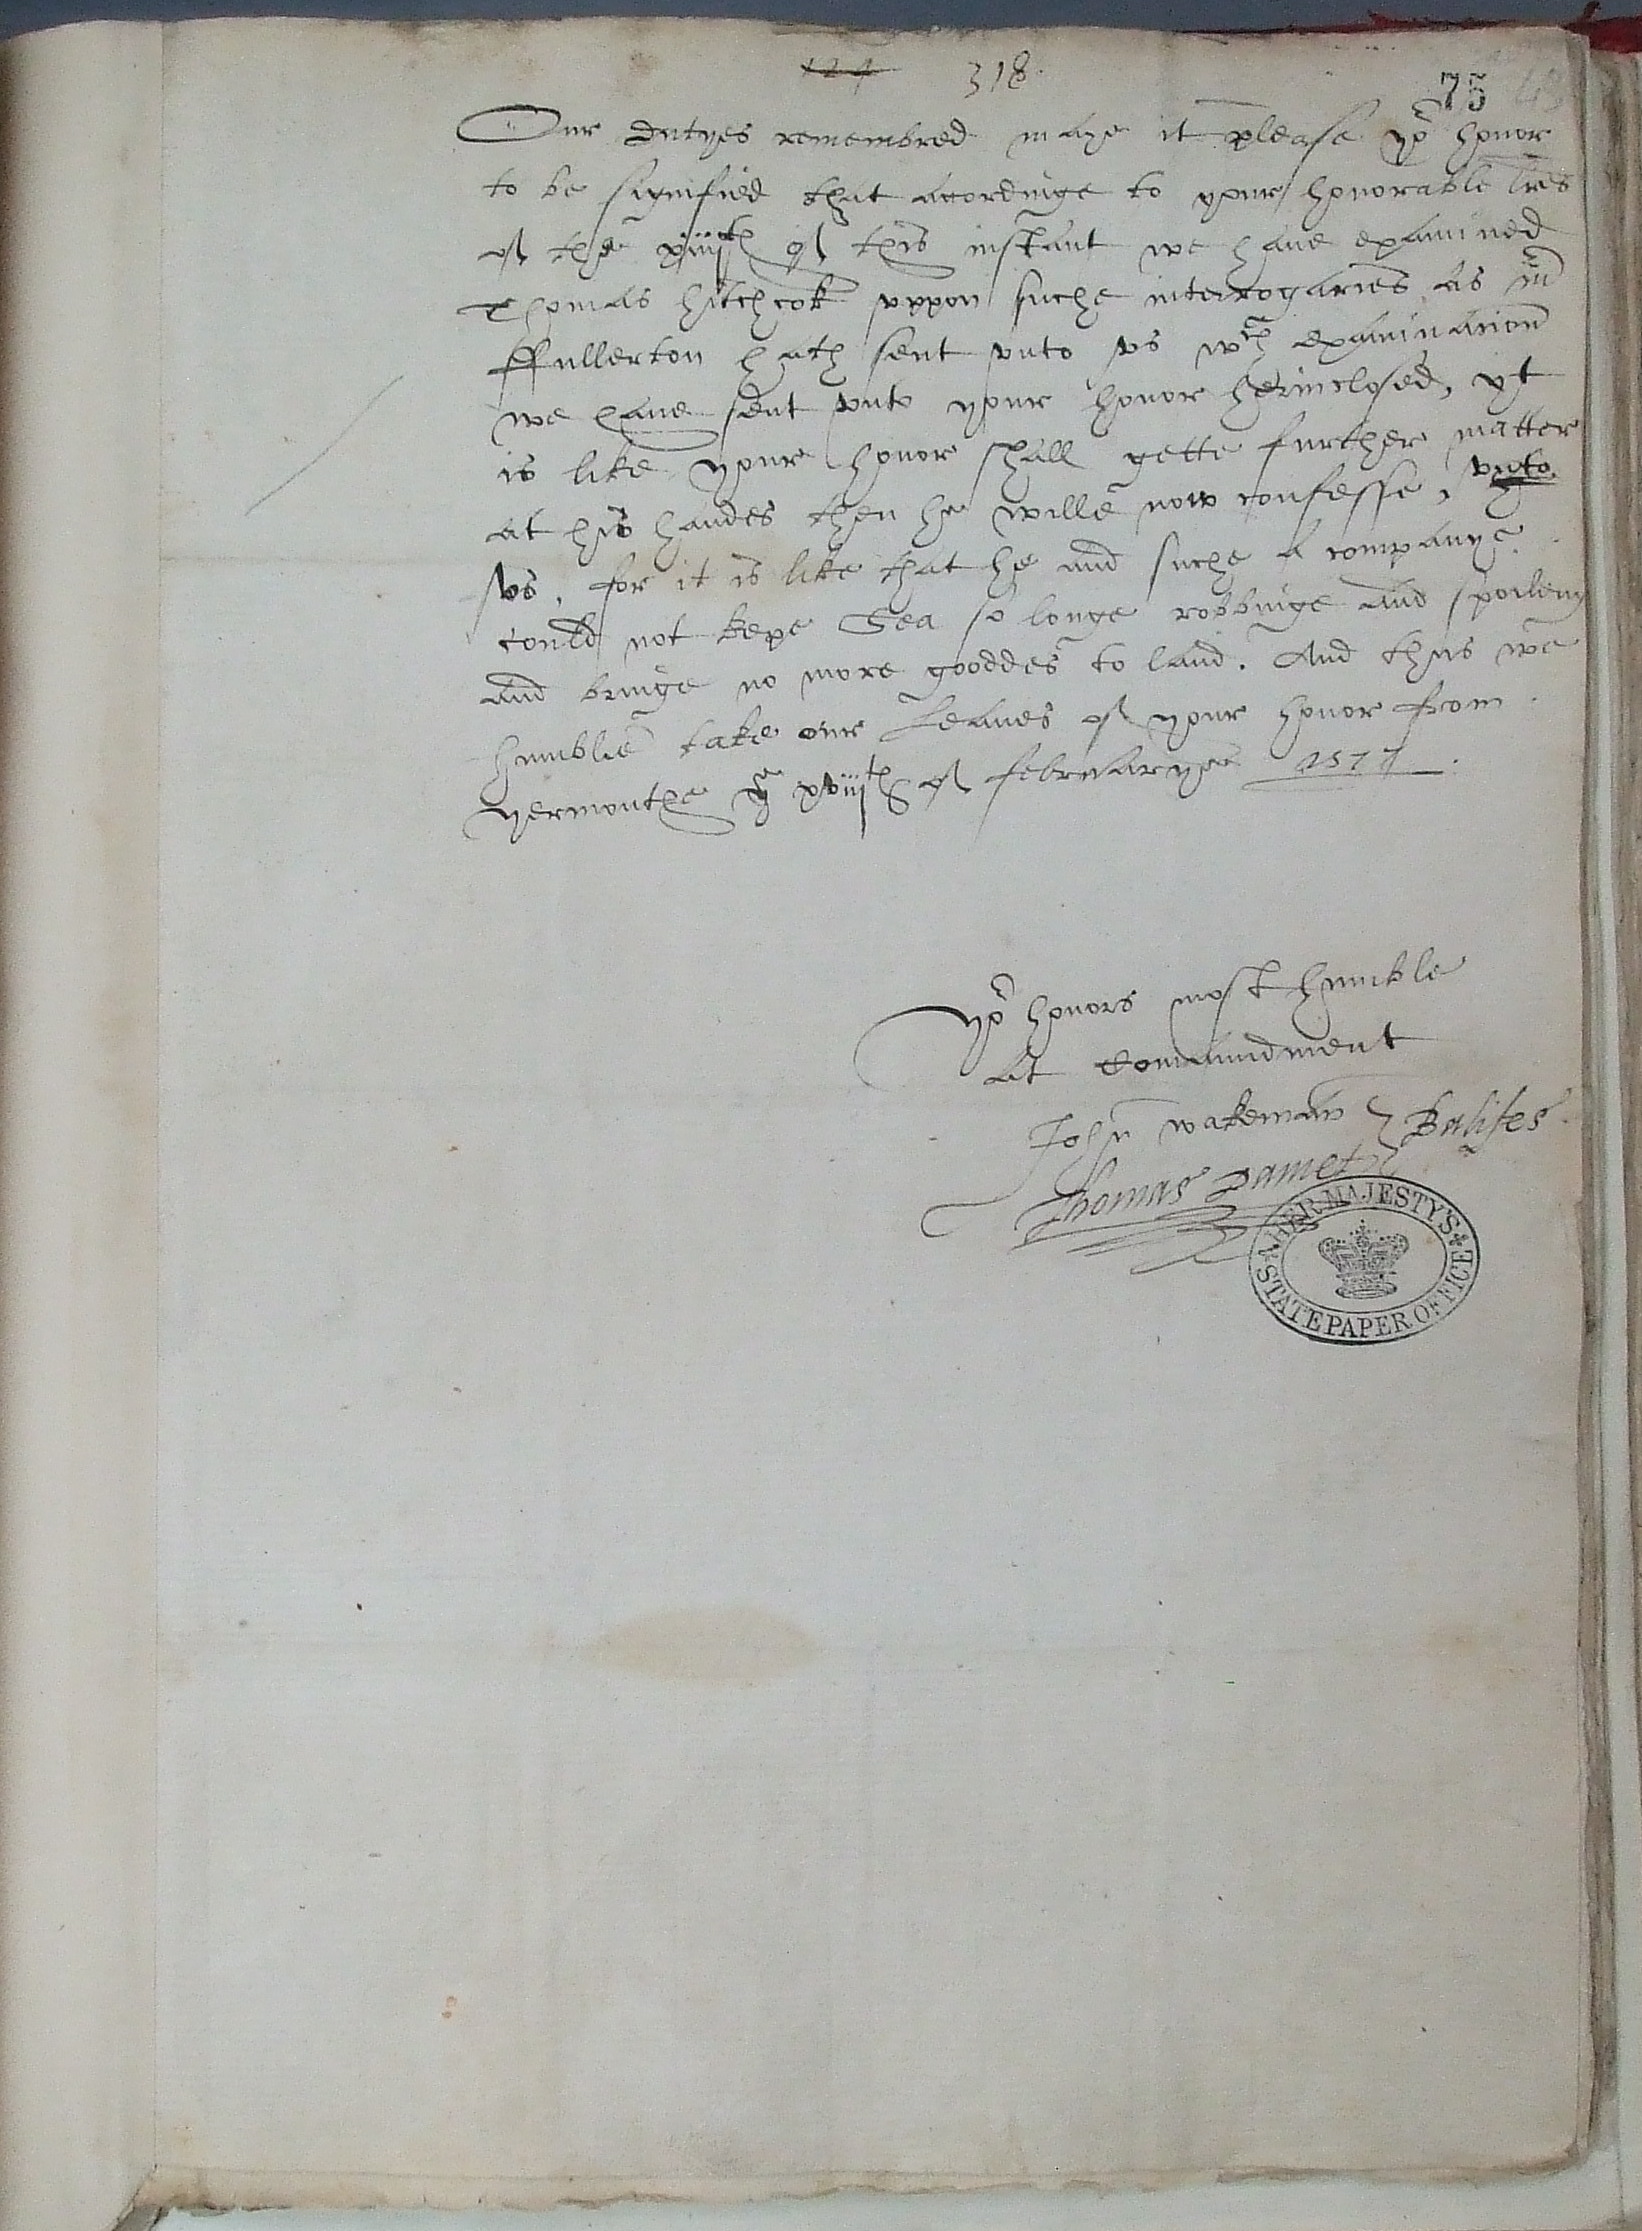 124 318.
75
Our dutyes remembred maye it please yor honor
to be signified that acordinge to your honorable lres
of the xiiijth of this instant we haue examined
Thomas hitchcok vppon suche interrogaries as mr
ffullerton hath sent vnto vs wch examinacion
we haue sent vnto your honor herinclosed, yt
is like your honor shall gette further matter
at his handes then he wille now confesse, vnto
vs, for it is like that he and suche a companye
could not kepe Sea so longe robbinge and spoileng
and bringe no more gooddes to land. And thus we
humblie take our Leaues of your honor from
yermouthe ye xviijth of februarye 1577.
yor honors most humble
at Comaundment
John wakeman } Balifes
Thomas Damet }
HER MAJESTY'S
STATE PAPER OFFICE